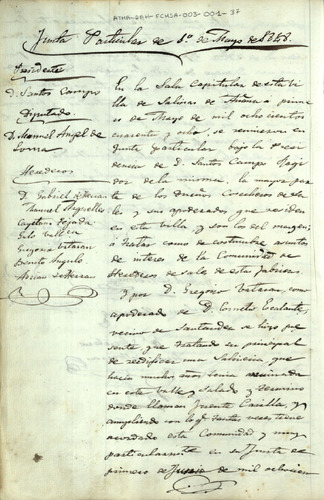 ATHA-GAH-FCMSA-003-001-37
Junta Particular de 1º de Mayo de 1848.
Presidente
D. Santos Campo
Diputado.
D. Manuel Angel de
Herederos
D. Gabriel de
Manuel Arguelles
Cayetano Tejada
Gregorio Vatarán
Benito Angulo
En la Sala capitular de esta vi
lla de Salinas de Añana a prime
ro de Mayo de mil ochocientos
cuarenta y ocho, se reunieron en
Junta particular bajo la Presi
dencia de D. Santos Campo Regi
dor de la misma, la mayor par
te de los dueños Cosecheros de Sa
les y sus apoderados que residen
en esta villa y son los del margen;
a tratar como de costumbre asuntos
de interes de la Comunidad de
Herederos de sales de estas fabricas.
Y por D. Gregorio Vatarán, como
apoderado de D. Cornelio Escalante,
vecino de Santander se hizo pre
sente que tratando su principal
de redificar una Salinera que
hacia muchos años tenia arruinada
en este Valle Salado y termino
donde llaman Fuente
cumpliendo con lo q. tantas veces tiene
acordado esta Comunidad y muy
particularmente en su Junta de
primero de Junio de mil ochocien